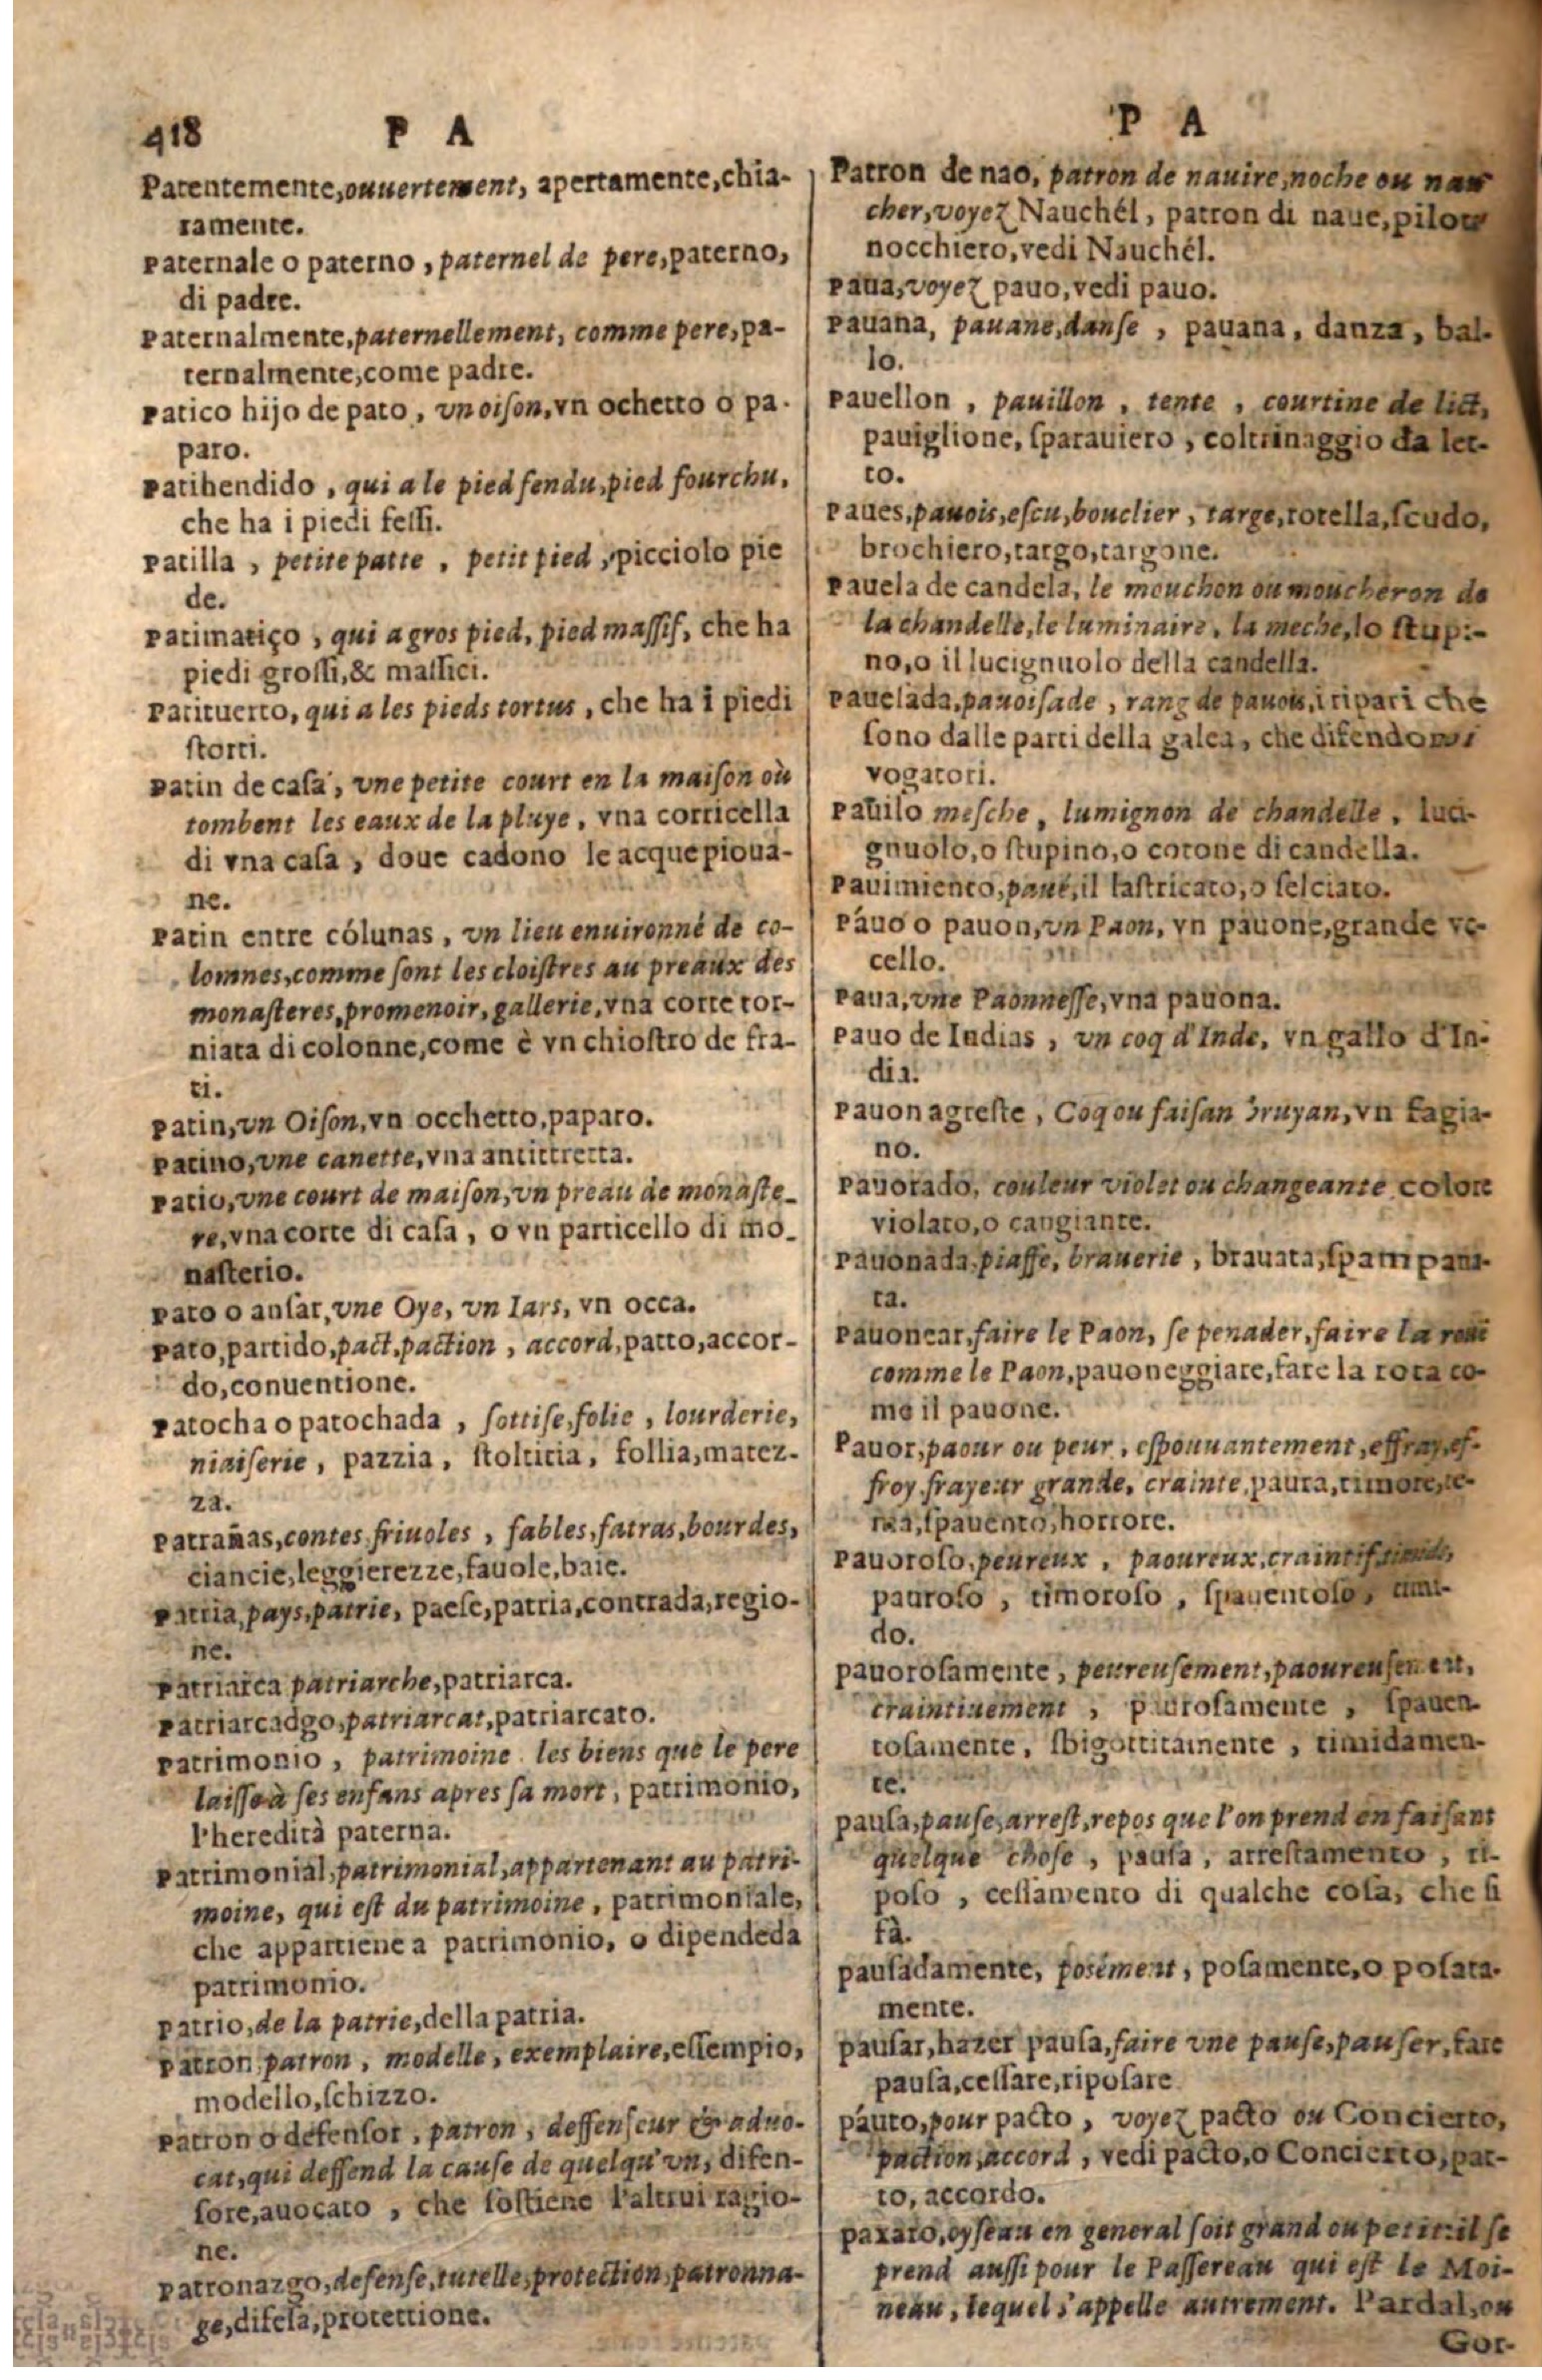 418 P A
Patentemente,ouuertement, apertamente,chia-
ramente.
Paternale o paterno , paternel de pere,paterno,
di padre.
Paternalmente,paternellement, comme pere,pa-
ternalmente,come padre.
Patico hijo de pato , vn oiſon,vn ochetto o pa-
paro.
Patihendido , qui a le pied fendu,pied fourchu,
che ha i piedi feſſi.
Patilla , petite patte , petit pied , picciolo pie
de.
Patimatiço , qui a gros pied, pied maſſif, che ha
piedi groſſi,& maſſici.
Patituerto, qui a les pieds tortus , che ha i piedi
ſtorti.
Patin de caſa , vne petite court en la maiſon où
tombent les eaux de la pluye , vna corticella
di vna caſa , doue cadono le acque pioua-
ne.
Patin entre cólunas , vn lieu enuironné de co-
lomnes,comme ſont les cloiſtres au preaux des
monaſteres,promenoir,gallerie,vna corte tor-
niata di colonne,come è vn chioſtro de fra-
ti.
Patin,vn Oiſon,vn occhetto,paparo.
Patino,vne canette,vna antittretta.
Patio,vne court de maiſon,vn preau de monaſte-
re,vna corte di caſa , o vn particello di mo-
naſterio.
Pato o anſar,vne Oye, vn Iars, vn occa.
Pato,partido,pact,paction , accord,patto,accor-
do,conuentione.
Patocha o patochada , ſottiſe,folie , lourderie,
niaiſerie , pazzia , ſtoltitia , follia,matez-
za.
Patrañas,contes friuoles , fables,fatras,bourdes,
ciancie,leggierezze,fauole,baie.
Patria,pays,patrie, paeſe,patria,contrada,regio-
ne.
Patriarca patriarche,patriarca.
Patriarcadgo,patriarcat,patriarcato.
Patrimonio , patrimoine les biens que le pere
laiſſe à ſes enfans apres ſa mort , patrimonio,
l'heredità paterna.
Patrimonial,patrimonial,appartenant au patri-
moine, qui eſt du patrimoine , patrimoniale,
che appartiene a patrimonio, o dipende da
patrimonio.
Patrio,de la patrie,della patria.
Patron patron , modelle , exemplaire,eſſempio,
modello,ſchizzo.
Patron o defenſor , patron , deffenſeur & aduo-
cat,qui deffend la cauſe de quelqu'vn, difen-
ſore,auocato , che ſoſtiene l'altrui ragio-
ne.
Patronazgo,defenſe,tutelle,protection,patronna-
ge,difeſa,protettione.
P A
Patron de nao, patron de nauire,noche ou nau
cher,voyez Nauchél , patron di naue,pilote
nocchiero,vedi Nauchél.
Paua,voyez pauo,vedi pauo.
Pauana, pauane,danſe , pauana , danza , bal-
lo.
Pauellon , pauillon , tente , courtine de lict,
pauiglione, ſparauiero , coltrinaggio da let-
to.
Paues,pauois,eſcu,bouclier , targe,rotella,ſcudo,
brochiero,targo,targone.
Pauela de candela, le mouchon ou moucheron de
la chandelle,le luminaire, la meche,lo ſtupi-
no,o il lucignuolo della candella.
Pauelada,pauoiſade , rang de pauois,i ripari che
ſono dalle parti della galea , che difendono i
vogatori.
Pauilo meſche , lumignon de chandelle , luci-
gnuolo,o ſtupino,o cotone di candella.
Pauimiento,paué,il laſtricato,o ſelciato.
Páuo o pauon,vn Paon, vn pauone,grande vc-
cello.
Paua,vne Paonneſſe,vna pauona.
Pauo de Indias , vn coq d'Inde, vn gallo d'In-
dia.
Pauon agreſte , Coq ou faiſan bruyan,vn fagia-
no.
Pauorado, couleur violet ou changeante colore
violato,o cangiante.
Pauonada,piaffe, brauerie , brauata,ſpampana-
ta.
Pauonear,faire le Paon, ſe penader,faire la roüe
comme le Paon,pauoneggiare,fare la rota co-
me il pauone.
Pauor,paour ou peur , eſpouuantement,effray,ef-
froy,frayeur grande, crainte,paura,timore,te-
ma,ſpauento,horrore.
Pauoroſo,peureux , paoureux,craintif,timide,
pauroſo , timoroſo , ſpauentoſo, timi-
do.
pauoroſamente , peureuſement,paoureuſement,
craintiuement , pauroſamente , ſpauen-
toſamente, ſbigottitamente , timidamen-
te.
pauſa,pauſe,arreſt,repos que l'on prend en faiſant
quelque choſe , pauſa , arreſtamento , ri-
poſo , ceſſamento di qualche coſa, che ſi
fà.
pauſadamente, poſément , poſamente,o poſata-
mente.
pauſar,hazer pauſa,faire vne pauſe,pauſer,fare
pauſa,ceſſare,ripoſare
páuto,pour pacto , voyez pacto ou Concierto,
paction,accord , vedi pacto,o Concierto,pat-
to, accordo.
paxaro,oyſeau en general ſoit grand ou petit:il ſe
prend auſſi pour le Paſſereau qui eſt le Moi-
neau , lequel s'appelle autrement. Pardal,ou
Gor-